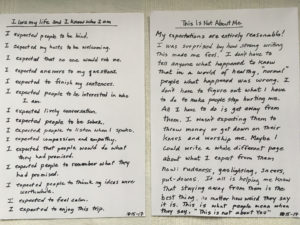 I love my life and I know who I am
I expected people to be kind.
I expected my hosts to be welcoming.
I expected that no one would rob me.
I expected answers to my questions.
I expected to finish my sentences.
I expected people to be interested in who
I am.
I expected lively conversation.
I expected people to be sober.
I expected people to listen when I spoke.
I expected compassion and empathy.
I expected that people would do what
they had promised.
I expected people to remember what they
had promised.
I expected people to think my ideas were
worthwhile.
I expected to feel calm.
I expected to enjoy this trip.
This is Not About Me
My expectations are entirely reasonable!
I was surprised by how strong writing
this made me feel. I don't have to
tell anyone what happened to know
that in a world of healthy, normal
people what happened was wrong. I
don't have to figure out what I have
to do to make people stop hurting me.
All I have to do is get away from
them. I wasn't expecting them to
throw money or get down on their
knees and worship me. Maybe I
could write a whole different page
about what I expect from them
now: rudeness, gaslighting, sneers,
put-downs. It all is helping me know
that staying away from them is the
best thing, no matter how weird they say
it is. This is what people mean when
they say, "This is not about You"